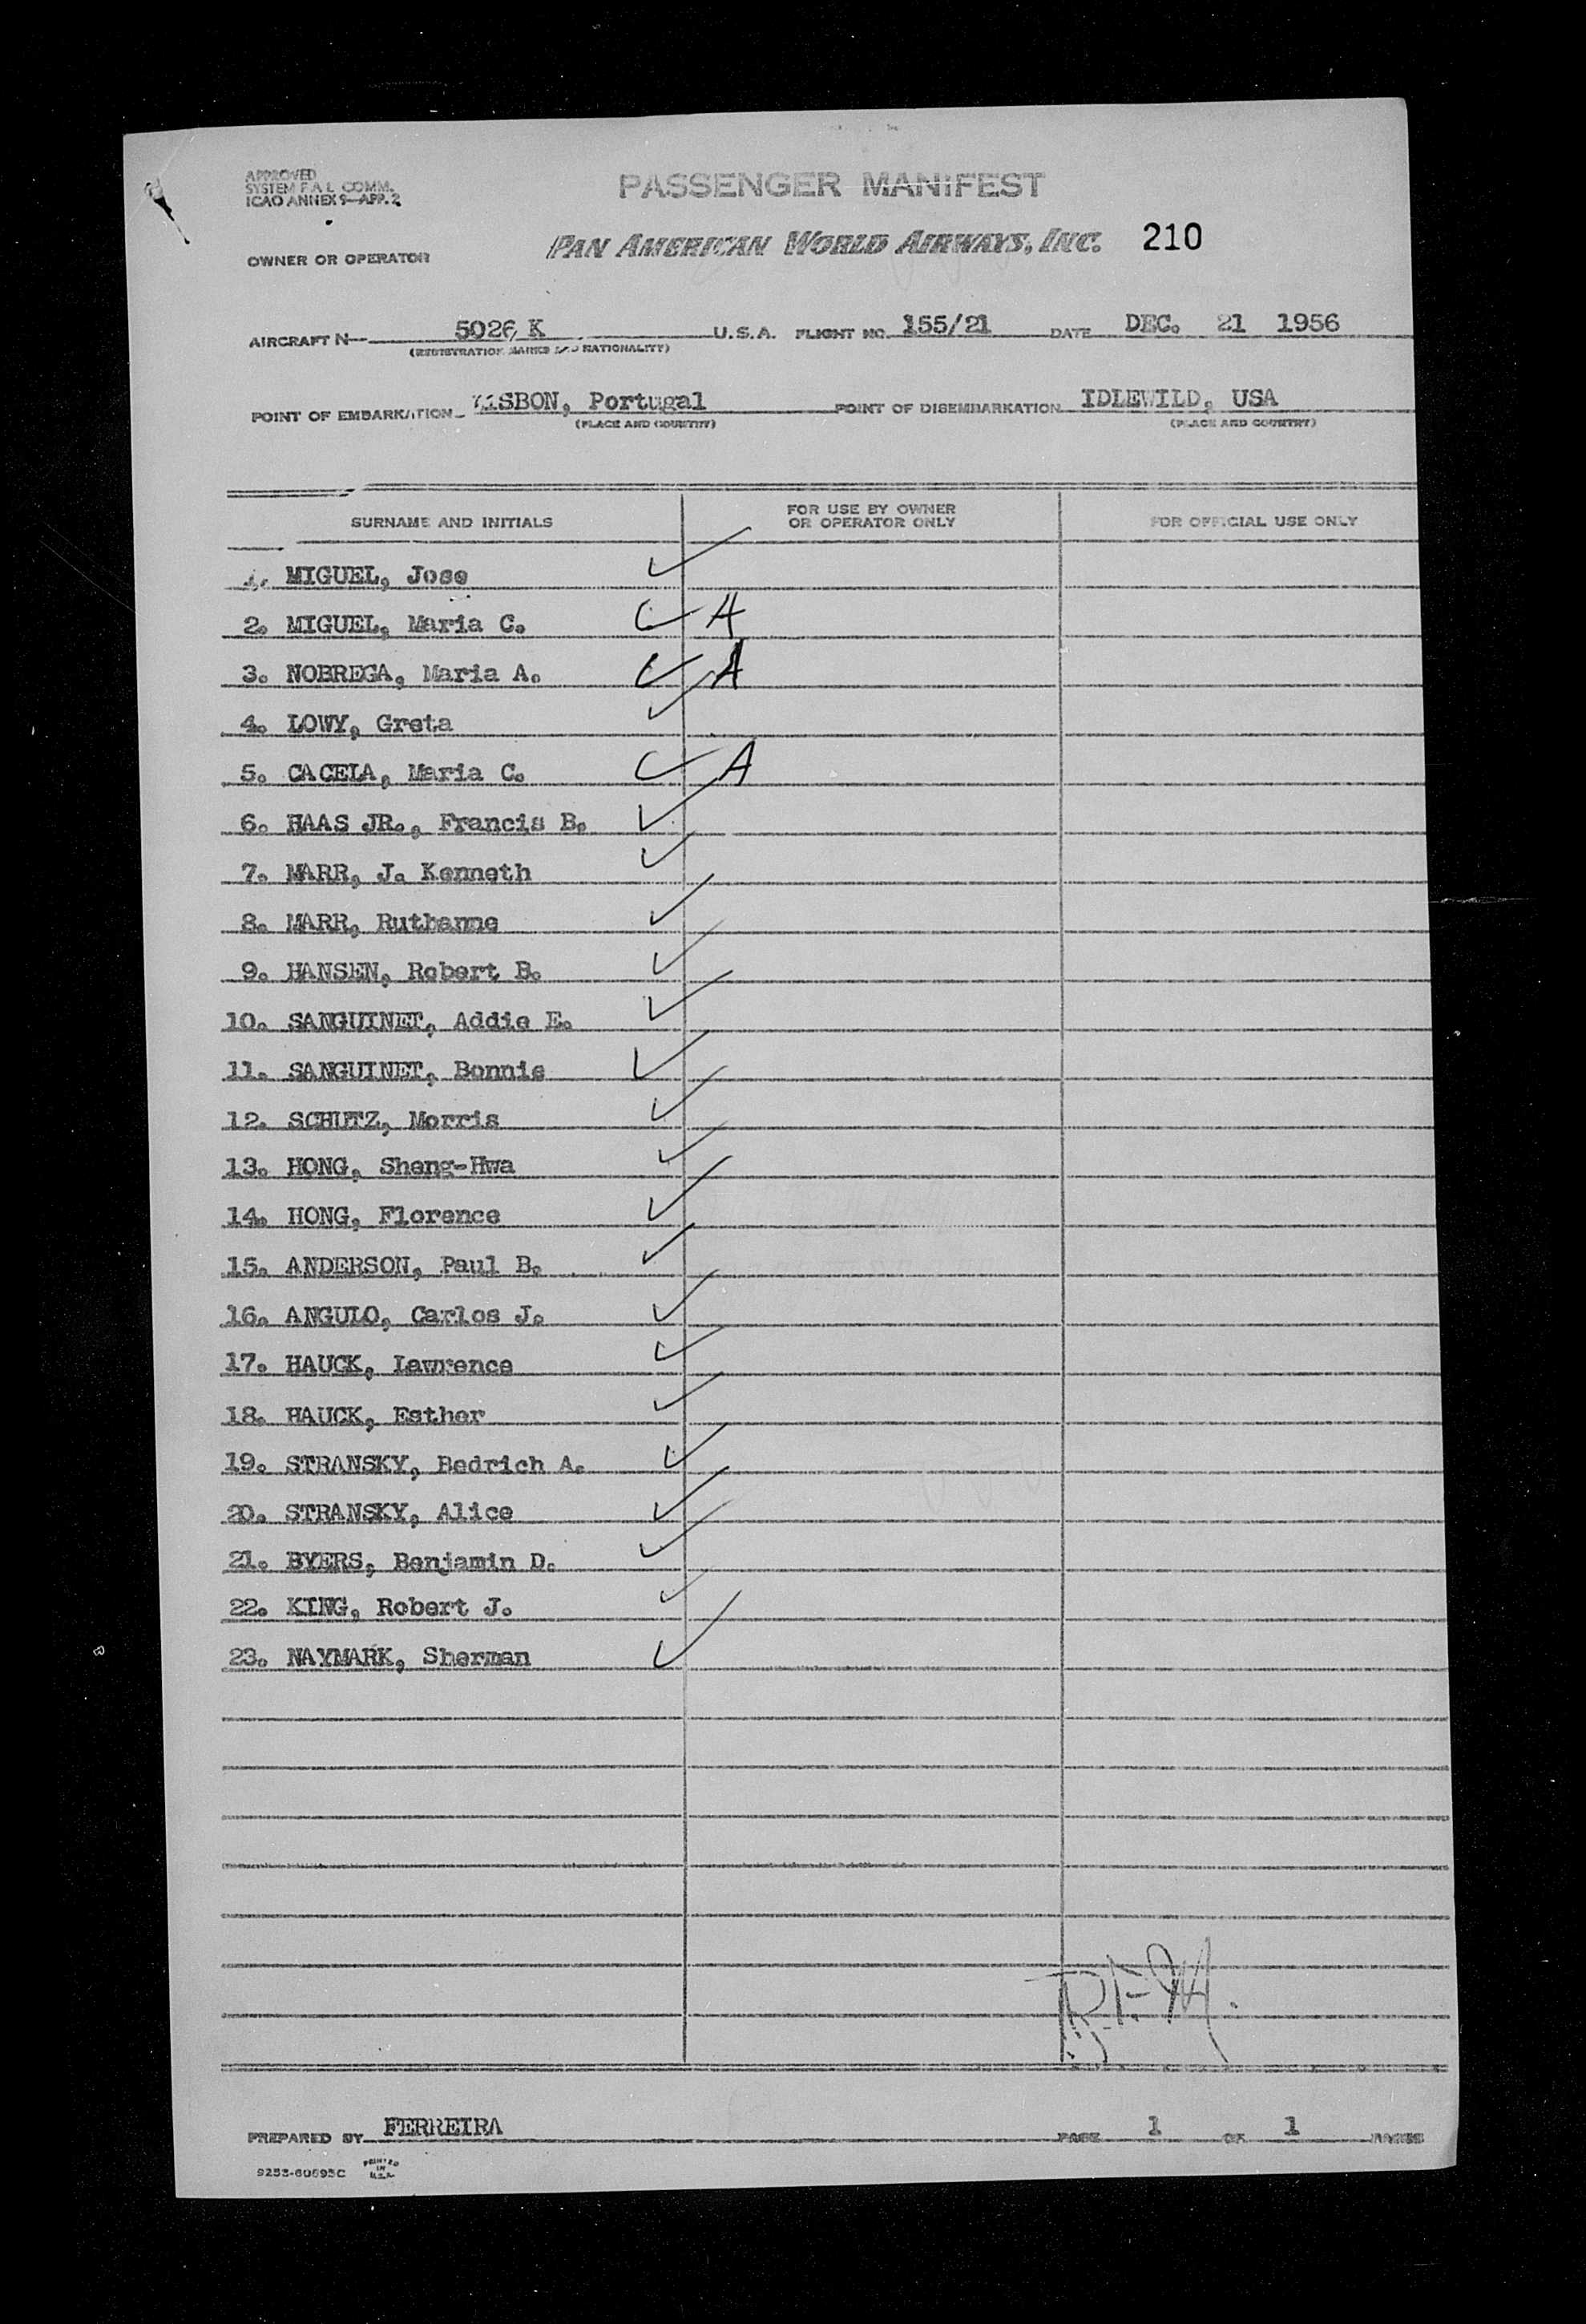 APPROVED
SYSTEM F A L COMM.
ICAO ANNEX 9—APP. 2
PASSENGER MANIFEST
OWNER OR OPERATOR PAN AMERICAN WORLD AIRWAYS, INC. 210
AIRCRAFT N— 5026 K U.S.A. FLIGHT NO. 155/21 DATE DEC. 21 1956
(REGISTRATION MARKS AND NATIONALITY)
POINT OF EMBARKATION LISBON, Portugal POINT OF DISEMBARKATION IDLEWILD, USA
(PLACE AND COUNTRY) (PLACE AND COUNTRY)
SURNAME AND INITIALS FOR USE BY OWNER OR OPERATOR ONLY FOR OFFICIAL USE ONLY
1. MIGUEL, Jose ✓
2. MIGUEL, Maria C. ✓ A
3. NOBREGA, Maria A. ✓ A
4. LOWY, Greta ✓
5. CACELA, Maria C. ✓ A
6. HAAS JR., Francis B. ✓
7. MARR, J. Kenneth ✓
8. MARR, Ruthanne ✓
9. HANSEN, Robert B. ✓
10. SANGUINET, Addie E. ✓
11. SANGUINET, Bonnie ✓
12. SCHUTZ, Morris ✓
13. HONG, Sheng-Hwa ✓
14. HONG, Florence ✓
15. ANDERSON, Paul B. ✓
16. ANGULO, Carlos J. ✓
17. HAUCK, Lawrence ✓
18. HAUCK, Esther ✓
19. STRANSKY, Bedrich A. ✓
20. STRANSKY, Alice ✓
21. BYERS, Benjamin D. ✓
22. KING, Robert J. ✓
23. NAYMARK, Sherman ✓
PREPARED BY FERREIRA PAGE 1 OF 1 PAGES
9253-60695C PRINTED IN U.S.A.